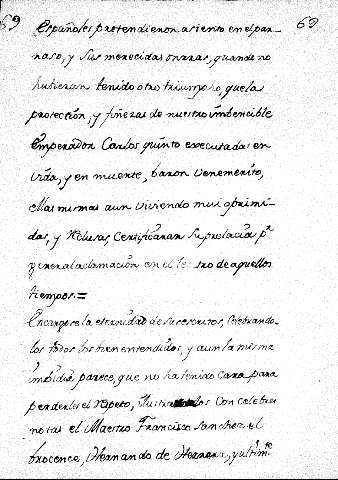 69 69
Españoles pretendieron asiento en el par-
naso, y sus merecidas onrras, quando no
hubieran tenido otro triumpho, que la
protección, y finezas de nuestro imbencible
Emperador Carlos quinto executadas en
vida, y en muerte, baron venemerito,
ellas mismas aun viviendo mui oprimi-
das, y reclusas, Certificaran su prelacia pr
general aclamación en el teatro de aquellos
tiempos.=
Encargose la eternidad de sus escritos, celebrando-
los todos los tor entendidos, y aun la misma
imbidia parece, que no ha tenido cara para
perderles el respeto, Ilustra los Con celebres
notas el Maestro Francisco Sanchez el
brocence, Hernando de Herrera, y ultimte